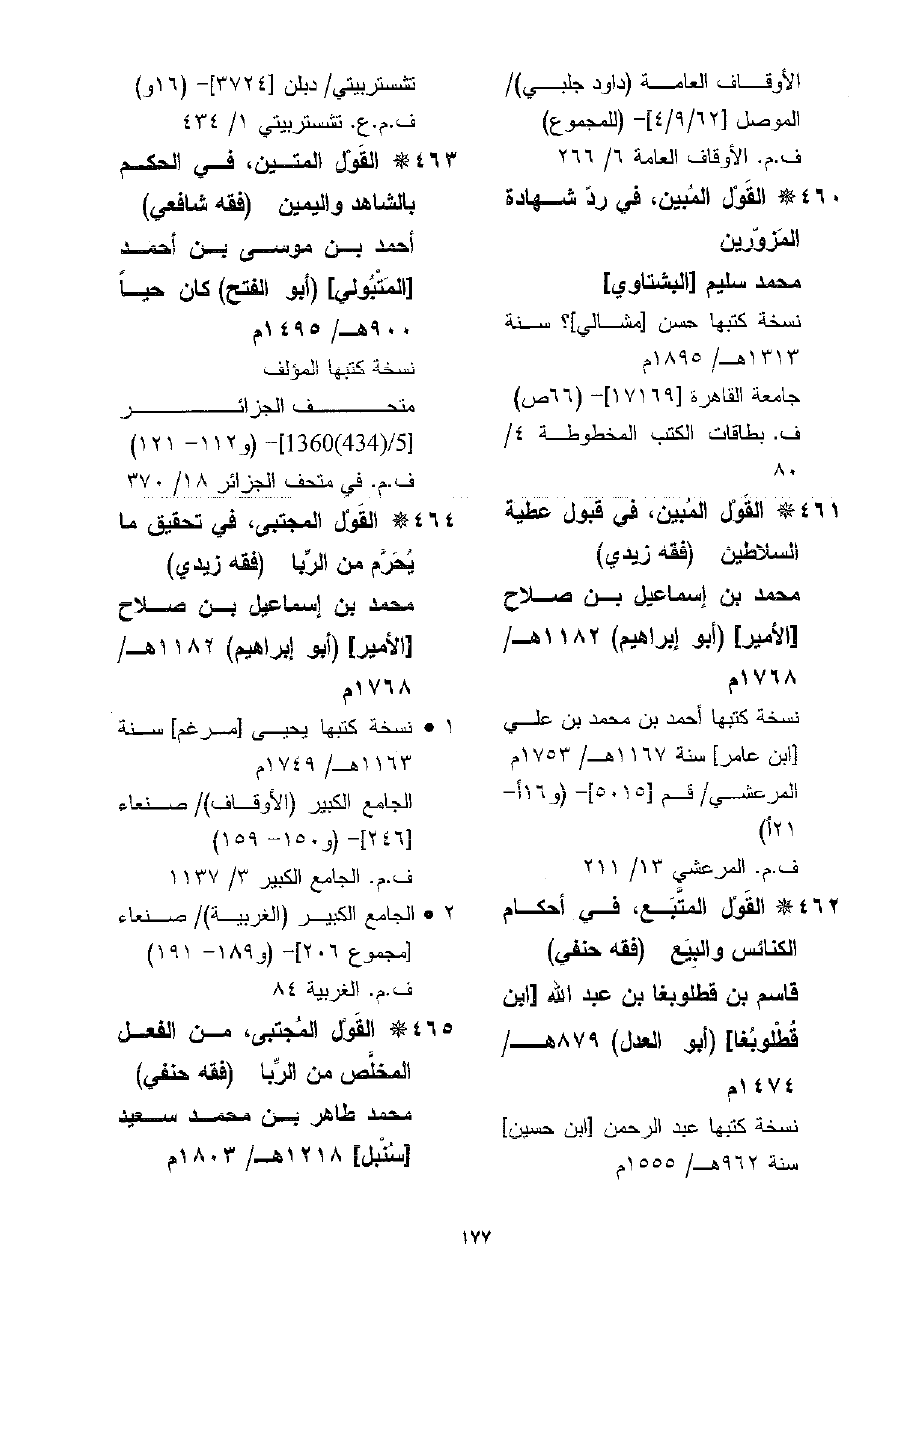 الأوقاف العامة (داود جلبي)/
الموصل [٤/٩/٦٢]- (للمجموع)
ف.م. الأوقاف العامة ٦/ ٢٦٦
٤٦٠* القَوْل المُبين، في ردّ شهادة
المزوّرين
محمد سليم [البشتاوي]
نسخة كتبها حسن [مشالي]؟ سنة
١٣١٣هـ/ ١٨٩٥م
جامعة القاهرة [١٧١٦٩]- (٦٦ص)
ف. بطاقات الكتب المخطوطة ٤/
٨٠
٤٦١* القَوْل المُبين، في قبول عطية
السلاطين (فقه زيدي)
محمد بن إسماعيل بن صلاح
[الأمير] (أبو إبراهيم) ١١٨٢هـ/
١٧٦٨م
نسخة كتبها أحمد بن محمد بن علي
[ابن عامر] سنة ١١٦٧هـ/ ١٧٥٣م
المرعشي/ قم [٥٠١٥]- (و١٦أ-
٢١أ)
ف.م. المرعشي ١٣/ ٢١١
٤٦٢* القَوْل المتَّبَع، في أحكام
الكنائس والبِيَع (فقه حنفي)
قاسم بن قطلوبغا بن عبد الله [ابن
قُطْلوبُغا] (أبو العدل) ٨٧٩هـ/
١٤٧٤م
نسخة كتبها عبد الرحمن [ابن حسين]
سنة ٩٦٢هـ/ ١٥٥٥م
تشستربيتي/ دبلن [٣٧٢٤]- (١٦و)
ف.م.ع. تشستربيتي ١/ ٤٣٤
٤٦٣* القَوْل المتين، في الحكم
بالشاهد واليمين (فقه شافعي)
أحمد بن موسى بن أحمد
[المتْبُولي] (أبو الفتح) كان حياً
٩٠٠هـ/ ١٤٩٥م
نسخة كتبها المؤلف
متحف الجزائر
[1360(434)/5]- (و١١٢- ١٢١)
ف.م. في متحف الجزائر ١٨/ ٣٧٠
٤٦٤* القَوْل المجتبى، في تحقيق ما
يُحَرَّم من الرِّبا (فقه زيدي)
محمد بن إسماعيل بن صلاح
[الأمير] (أبو إبراهيم) ١١٨٢هـ/
١٧٦٨م
١ • نسخة كتبها يحيى [مرغم] سنة
١١٦٣هـ/ ١٧٤٩م
الجامع الكبير (الأوقاف)/ صنعاء
[٢٤٦]- (و١٥٠- ١٥٩)
ف.م. الجامع الكبير ٣/ ١١٣٧
٢ • الجامع الكبير (الغربية)/ صنعاء
[مجموع ٢٠٦]- (و١٨٩- ١٩١)
ف.م. الغربية ٨٤
٤٦٥* القَوْل المُجتبى، من الفعل
المخلَّص من الرِّبا (فقه حنفي)
محمد طاهر بن محمد سعيد
[سُنْبل] ١٢١٨هـ/ ١٨٠٣م
١٧٧